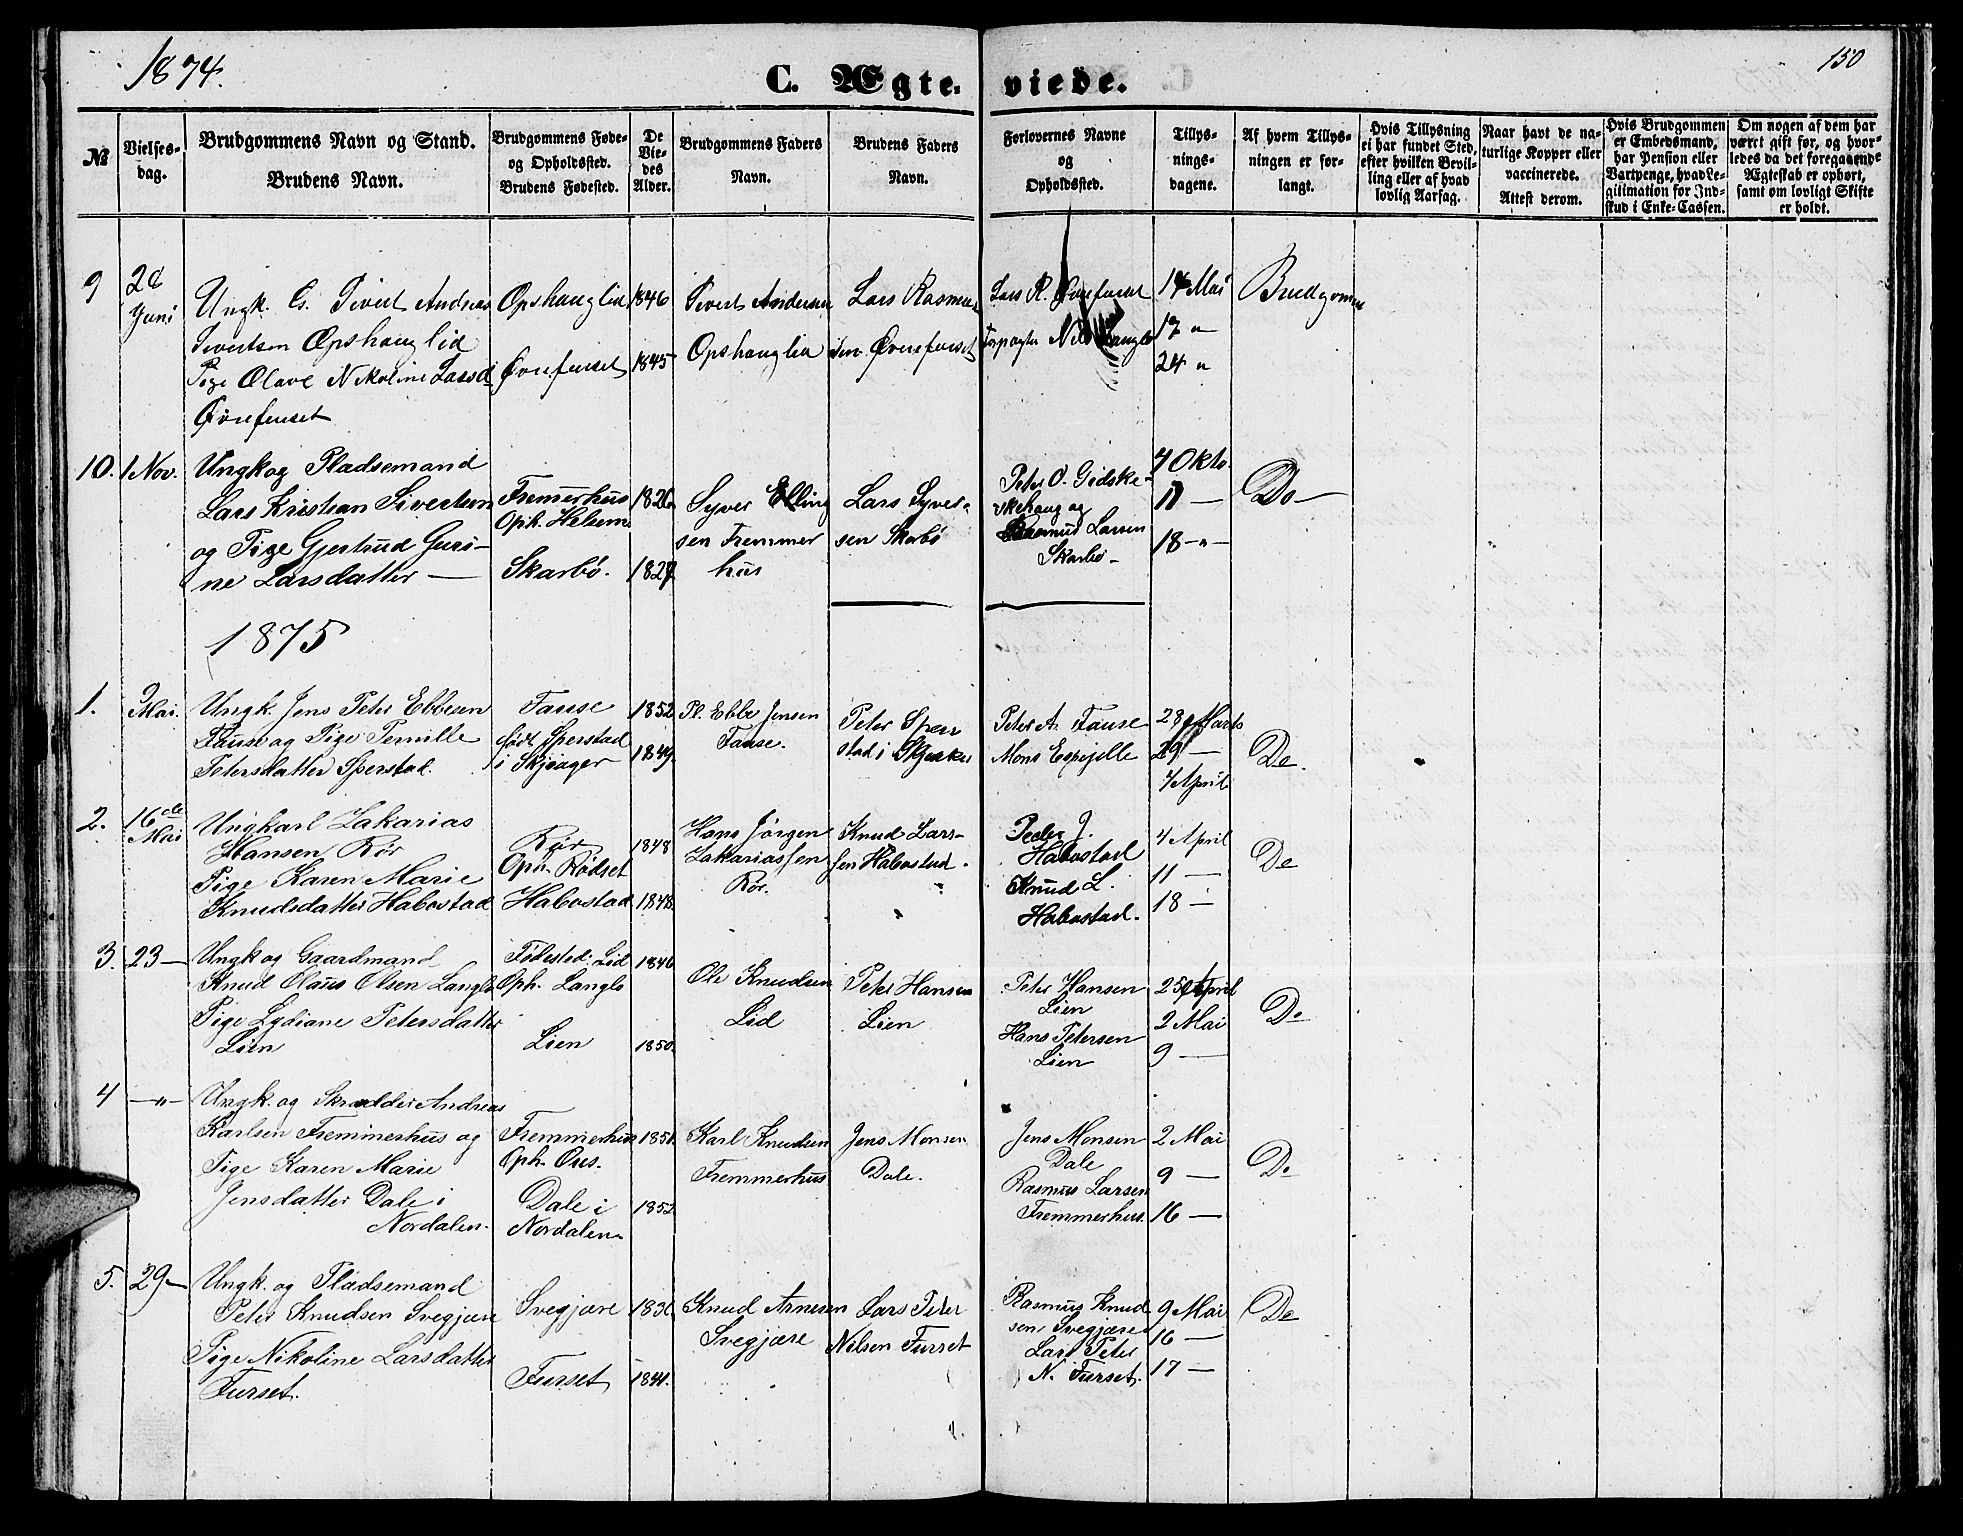 1874.
C. Ægte-viede.
150
№
Vielses-dag.
Brudgommens Navn og Stand.
Brudens Navn.
Brudgommens Føde- og Opholdssted.
Brudens Fødested.
De Vie-des Alder.
Brudgommens Faders Navn.
Brudens Faders Navn.
Forlovernes Navne og Opholdssted.
Tillys-nings-dagene.
Af hvem Tillys-ningen er for-langt.
Hvis Tillysning ei har fundet Sted, efter hvilken Bevil-ling eller af hvad lovlig Aarsag.
Naar havt de na-turlige Kopper eller vaccinerede.
Attest derom.
Hvis Brudgommen er Embedsmand, har Pension eller Vartpenge, hvad Le-gitimation for Ind-skud i Enke-Cassen.
Om nogen af dem har været gift før, og hvor-ledes da det foregaaende Ægteskab er ophørt, samt om lovligt Skifte er holdt.
9
28 Juni
Ungk. G. Sivert Andreas
Sivertsen Opshauglid
Pige Olave Nikoline Larsd
Øvrefurset
Opshauglid
Øvrefurset
1846
1845
Sivert Andersen
Opshauglid
Lars Rasmus
sen Øvrefurset
Lars R. Øvrefurset
Forpagter Nils Langlo
14 Mai
17 "
24 "
Brudgommen
10.
1 Nov.
Ungk og Pladsemand
Lars Kristian Sivertsen
og Pige Gjertrud Guri-
ne Larsdatter —
Fremerhus
Oph. Helsem
Skarbö.
1826
1827
Syver Elling
sen Fremmer
hus
Lars Syver-
sen Skarbö
Peter O. Gidske-
ekehaug og
Rasmus Larsen
Skarbö -
4 Okto.
11 —
18 -"-
Do —
1875
1.
2 Mai.
Ungk. Jens Peter Ebbesen
Fause og Pige Pernille
Petersdatter Sperstad.
Fause
født Sperstad
i Skjeager
1852
1849.
Pl. Ebbe Jensen
Fause.
Peter Sper
stad i Skjeaker
Peter A. Fause
Mons Espejelle
28 Marts
29 —
4 April
Do.
2.
16de Mai
Ungkarl Zakarias
Hansen Rör
Pige Karen Marie
Knudsdatter Habostad
Rör
Oph. Rödset
Habostad
1848
1848.
Hans Jörgen
Zakariassen
Rör.
Knud Lars-
sen Habostad.
Peder J.
Habostad
Knud L.
Habostad.
4 April
11 —
18 —
Do
3.
23 —
Ungk og Gaardmand
Knud Olaus Olsen Langlo
Pige Lydiane Petersdatter
Lien
Fødested: Lid
Oph. Langlo
Lien
1846
1850.
Ole Knudsen
Lid
Peter Hansen
Lien
Peter Hansen
Lien
Hans Petersen
Lien
25 April
2 Mai
9 —
Do
4
—"—
Ungk. og Skrædder Andreas
Karlsen Fremmerhus og
Pige Karen Marie
Jensdatter Dale i
Nordalen-
Fremmerhus
Oph. Ous.
Dale i
Nordalen.
1851.
1852
Karl Knudsen
Fremmerhus
Jens Monsen
Dale.
Jens Monsen
Dale
Rasmus Larsen
Fremmerhus.
2 Mai
9 —
16 —
Do
5.
29 —
Ungk. og Pladsemand
Peter Knudsen Svegjære
Pige Nikoline Larsdatter
Furset.
Svegjære
Furset
1836
1841.
Knud Arnesen
Svegjære
Lars Peter
Nilsen Furset
Rasmus Knud
sen, Svegjære
Lars Peter
N. Furset.
9 Mai
16 —
17 —
Do